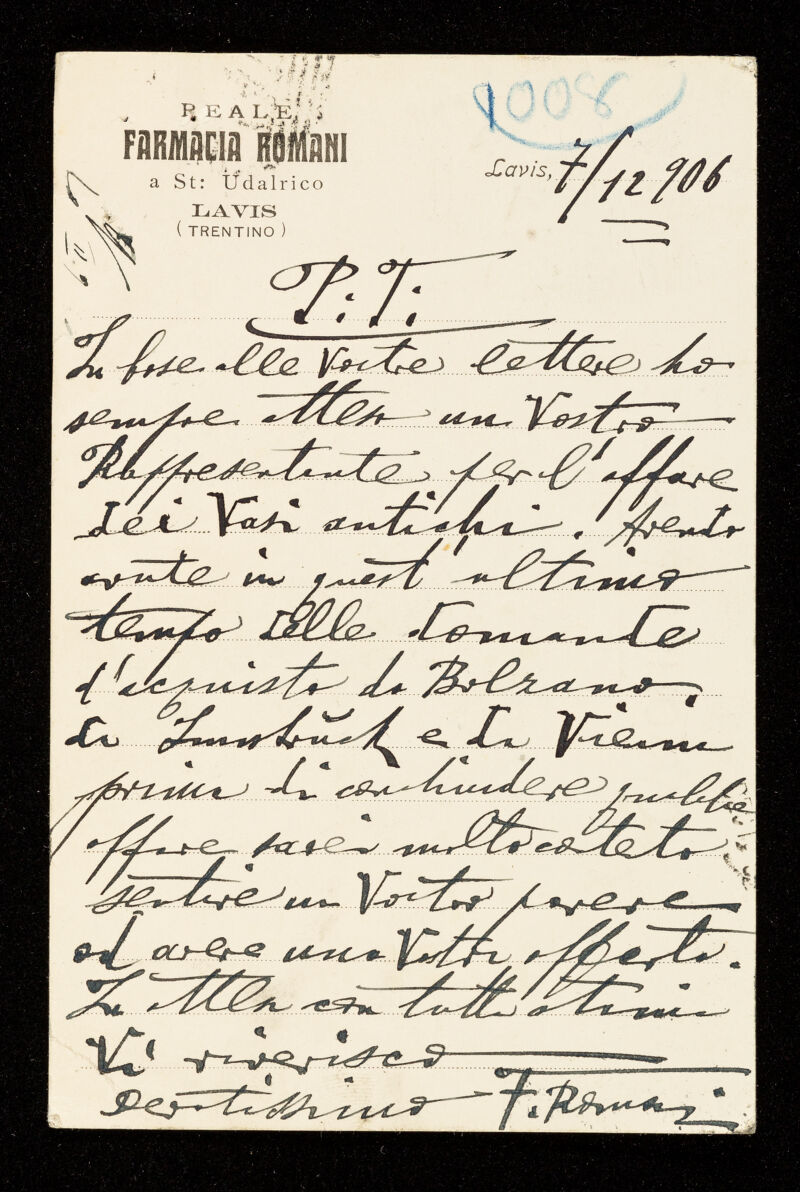 1008
REALE
FARMACIA ROMANI
a St: Udalrico
LAVIS
(TRENTINO)
Lavis, 7/12 906
P. T.
In base alle Vostre lettere ho
sempre atteso un Vostro
Rappresentante per l'affare
dei Vasi antichi. Avendo
avute in quest'ultimo
tempo delle domande
d'acquisto da Bolzano,
da Innsbruck e da Vienna
prima di conchiudere qualche
affare sarei molto contento
sentire un Vostro parere
ed avere una Vostra offerta.
In attesa con tutta stima
Vi riverisco
devotissimo F. Romani